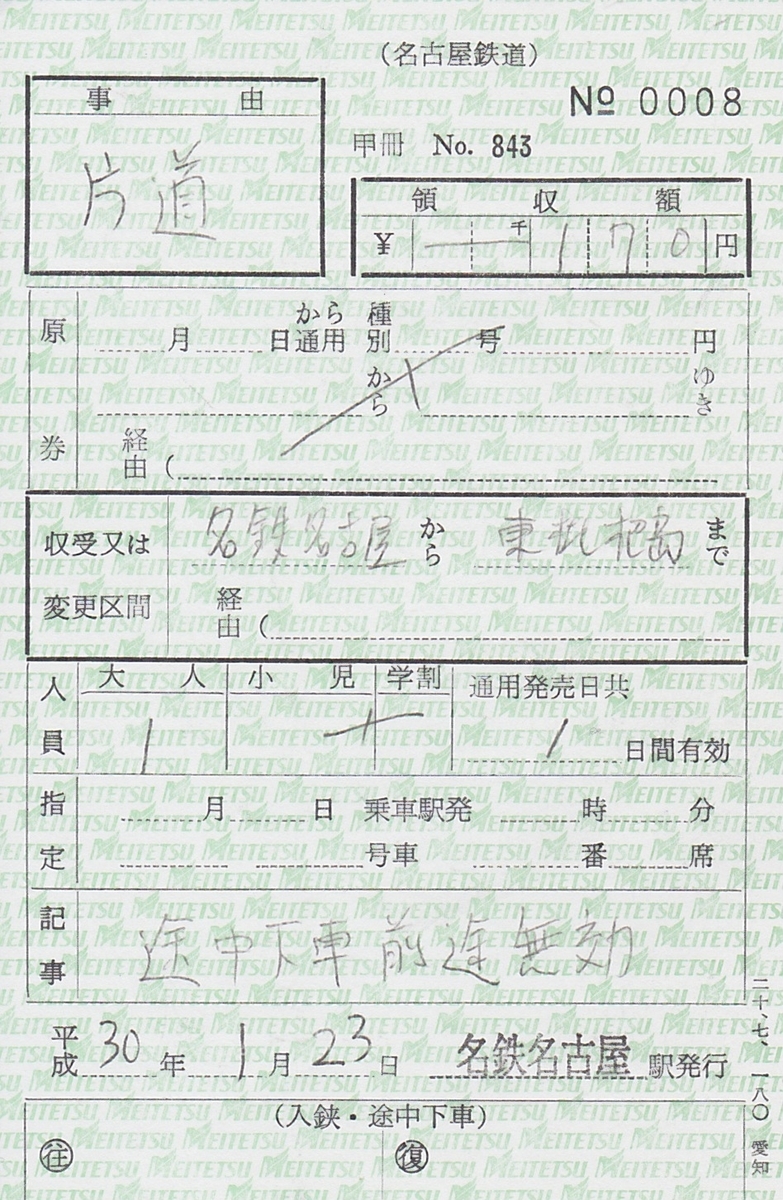 (名古屋鉄道)
事 由
№ 0008
片道
甲冊 No. 843
領 収 額
¥ 千 170 円
原券
月 日から通用 種別 号 円
から ゆき
経由 (
収受又は変更区間
名鉄名古屋 から 東枇杷島 まで
経由 (
人員 大人 小児 学割 通用発売日共
1 1 日間有効
指定
月 日 乗車駅発 時 分
号車 番 席
記事
途中下車前途無効
平成 30 年 1 月 23 日 名鉄名古屋 駅発行
(入鋏・途中下車)
往 復
二十、七、一八〇 愛知
MEITETSU